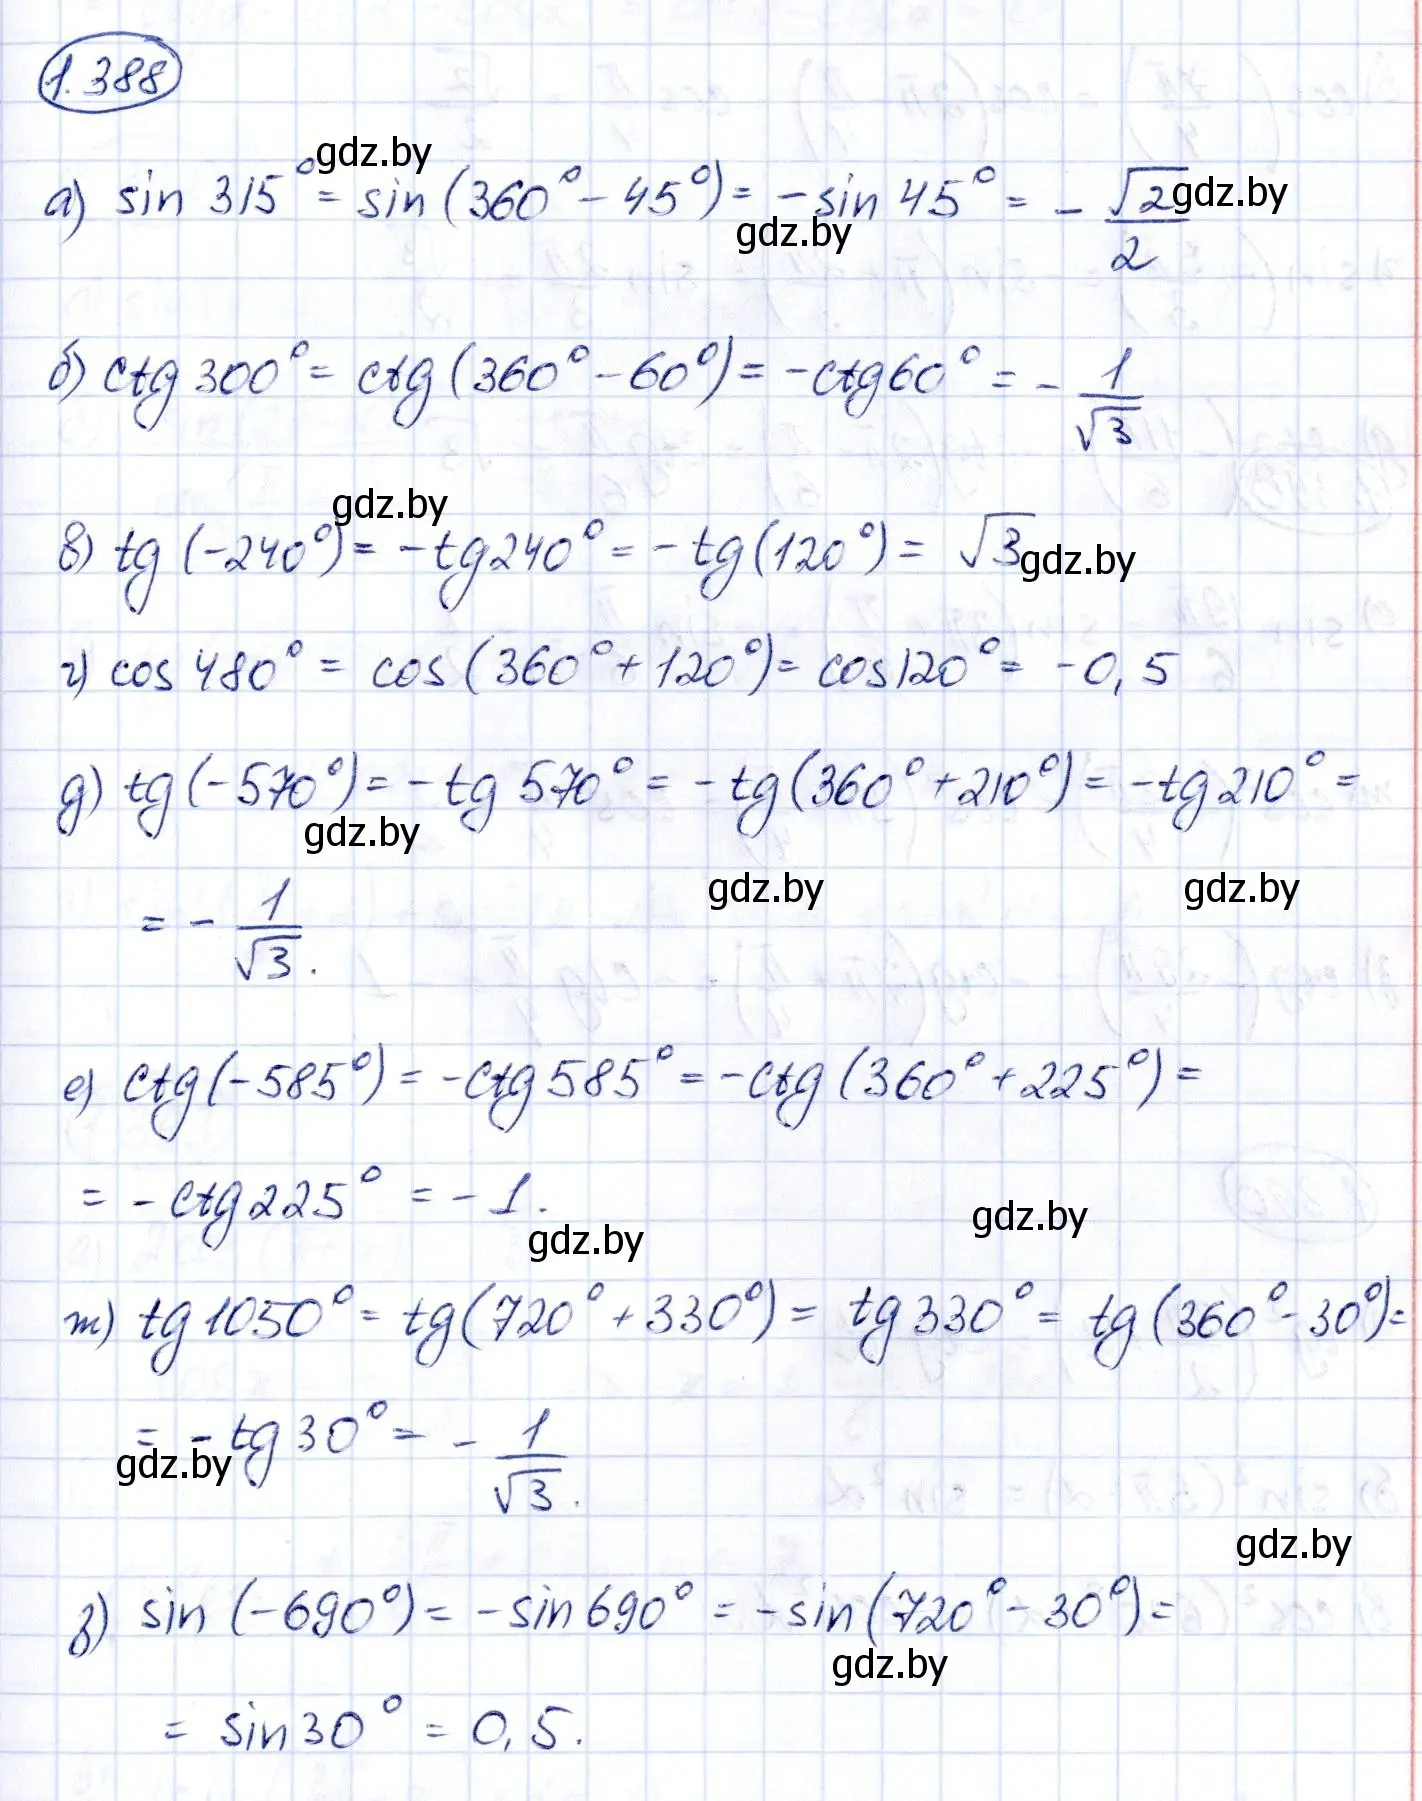 1.388
gdz.by
а) sin 315° = sin (360° - 45°) = - sin 45° = - √2/2
gdz.by
gdz.by
б) ctg 300° = ctg (360° - 60°) = - ctg 60° = - 1/√3
gdz.by
в) tg (-240°) = - tg 240° = - tg (120°) = √3
gdz.by
г) cos 480° = cos (360° + 120°) = cos 120° = -0,5
д) tg (-570°) = - tg 570° = - tg (360° + 210°) = - tg 210° =
gdz.by
gdz.by
gdz.by
= - 1/√3.
е) ctg (-585°) = - ctg 585° = - ctg (360° + 225°) =
= - ctg 225° = - 1.
gdz.by
gdz.by
ж) tg 1050° = tg (720° + 330°) = tg 330° = tg (360° - 30°) =
= - tg 30° = - 1/√3.
gdz.by
gdz.by
з) sin (-690°) = - sin 690° = - sin (720° - 30°) =
gdz.by
= sin 30° = 0,5.